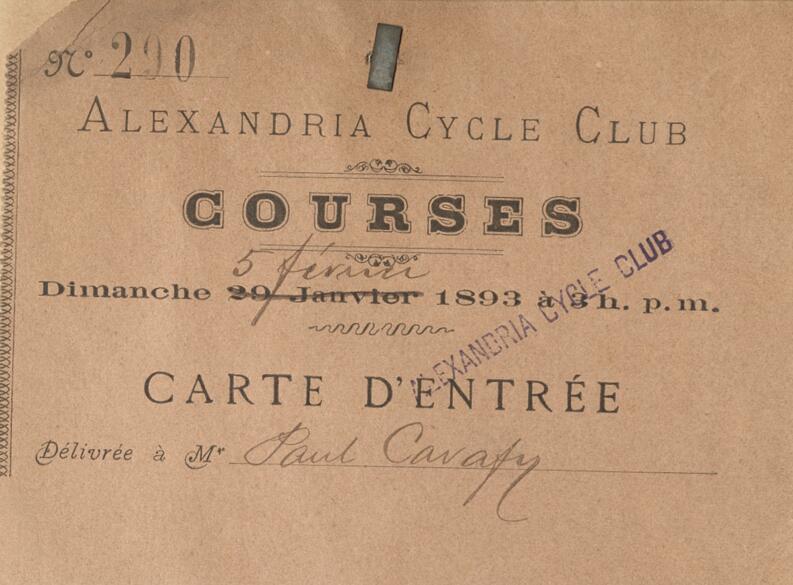 No 290
ALEXANDRIA CYCLE CLUB
COURSES
5 février
Dimanche 29 Janvier 1893 à 3 h. p. m.
ALEXANDRIA CYCLE CLUB
CARTE D'ENTRÉE
Délivrée à Mr Paul Cavafy